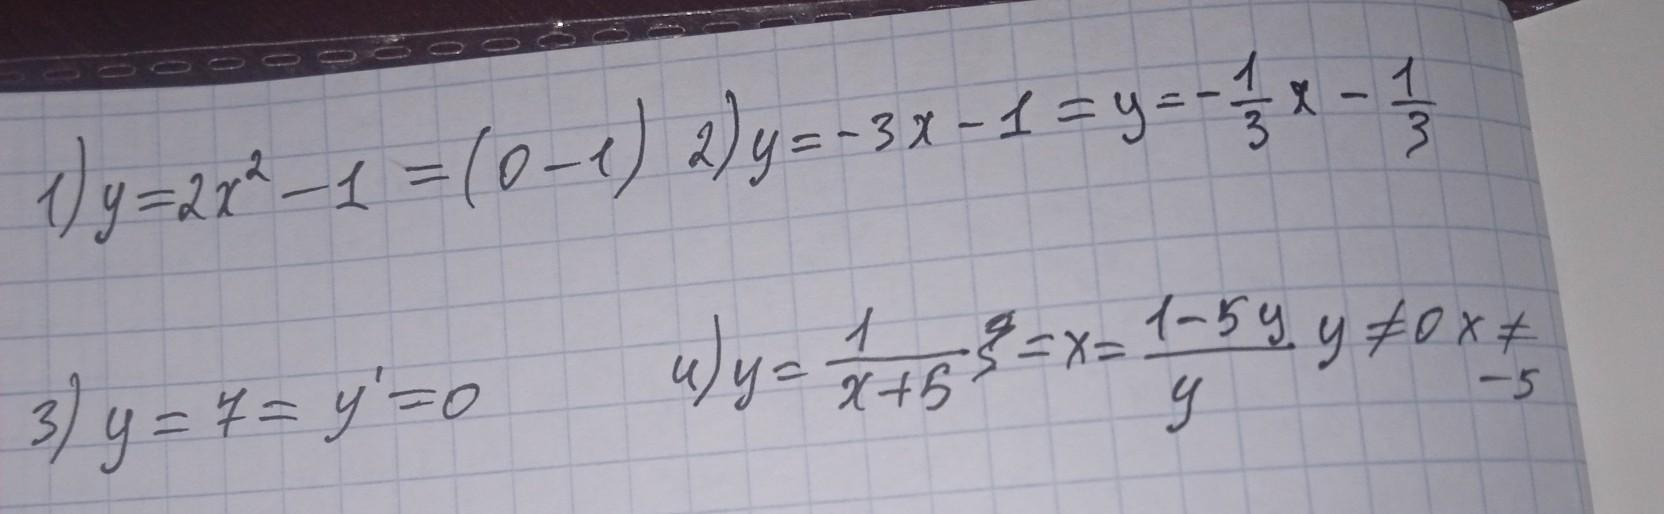 1) y = 2x² - 1 = (0 - 1) 2) y = -3x - 1 = y = -1/3 x - 1/3
3) y = 7 = y' = 0 4) y = 1/(x+5) = x = (1-5y)/y y ≠ 0 x ≠ -5